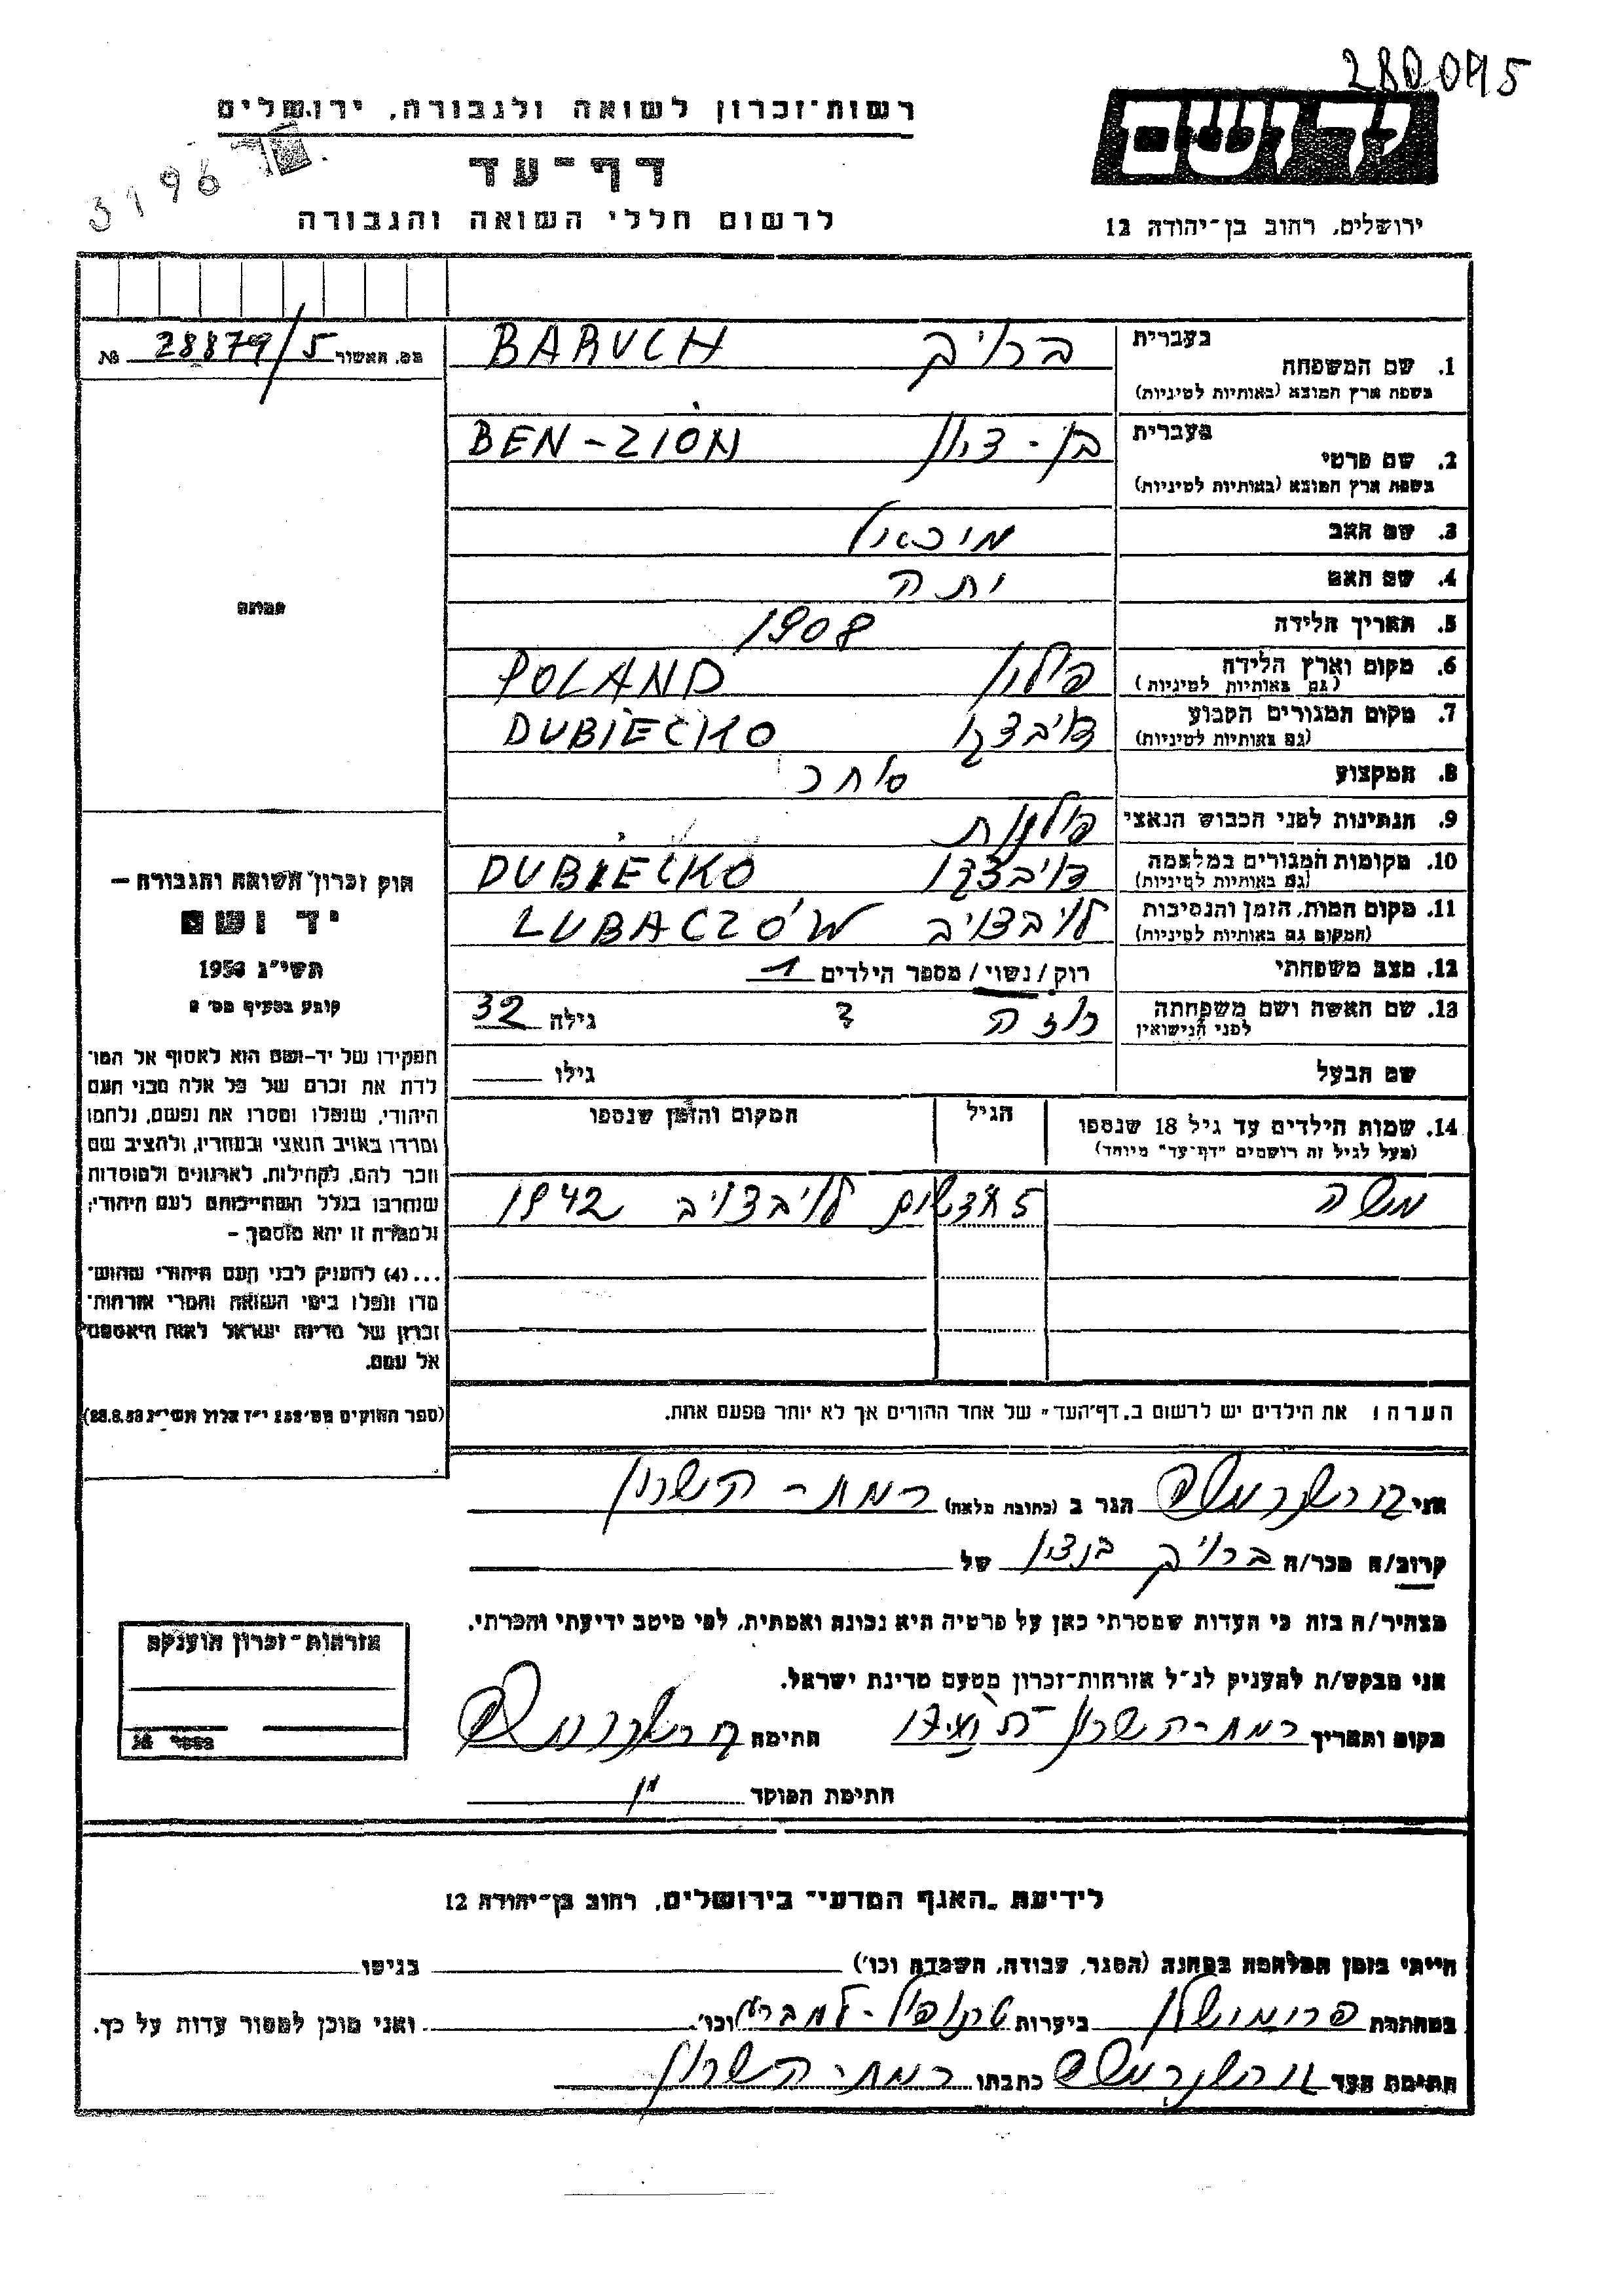 280095
רשות־זכרון לשואה ולגבורה, ירושלים
יד ושם
דף־עד
3196
לרשום חללי השואה והגבורה
ירושלים, רחוב בן־יהודה 12
מס. האשור 28879/5 №
1. שם המשפחה בעברית ברוך BARUCH
בשפת ארץ המוצא (באותיות לטיניות)
2. שם פרטי בעברית בן-ציון BEN-ZION
בשפת ארץ המוצא (באותיות לטיניות)
3. שם האב מיכאל
4. שם האם יתה
5. תאריך הלידה 1908
6. מקום וארץ הלידה פולין POLAND
(גם באותיות לטיניות)
7. מקום המגורים הקבוע דיבצקו DUBIECKO
(גם באותיות לטיניות)
8. המקצוע סוחר
9. הנתינות לפני הכבוש הנאצי פולנית
10. מקומות המגורים במלחמה דיבצקו DUBIECKO
(גם באותיות לטיניות)
11. מקום המות, הזמן והנסיבות לויבצויב LUBACZÓW
(המקום גם באותיות לטיניות)
12. מצב משפחתי רוק/נשוי/מספר הילדים 1
13. שם האשה ושם משפחתה רוזה ? גילה 32
לפני הנישואין
שם הבעל גילו
14. שמות הילדים עד גיל 18 שנספו הגיל המקום והזמן שנספו
(מעל לגיל זה רושמים "דף־עד" מיוחד)
משה 5 חדשים לויבצויב 1942
הערה: את הילדים יש לרשום ב„דף־העד" של אחד ההורים אך לא יותר מפעם אחת.
תמונה
חוק זכרון השואה והגבורה –
יד ושם
תשי"ג 1953
קובע בסעיף מס' 2
תפקידו של יד־ושם הוא לאסוף אל המו־
לדת את זכרם של כל אלה מבני העם
היהודי, שנפלו ומסרו את נפשם, נלחמו
ומרדו באויב הנאצי ובעוזריו, ולהציב שם
וזכר להם, לקהילות, לארגונים ולמוסדות
שנחרבו בגלל השתייכותם לעם היהודי;
ולמטרה זו יהא מוסמך –
...(4) להעניק לבני העם היהודי שהוש־
מדו ונפלו בימי השואה והמרי אזרחות־
זכרון של מדינת ישראל לאות היאספם
אל עמם.
(ספר החוקים מס' 132 י"ז אלול תשי"ג 28.8.53)
אני הגר ב (כתובת מלאה) רמת-השרון
קרוב/ה מכר/ה ברוך בנציון של
מצהיר/ה בזה כי העדות שמסרתי כאן על פרטיה היא נכונה ואמתית, לפי מיטב ידיעתי והכרתי.
אני מבקש/ת להעניק לנ"ל אזרחות־זכרון מטעם מדינת ישראל.
מקום ותאריך רמת-השרון חתימה
חתימת המוסד
אזרחות־זכרון הוענקה
לידיעת „האגף המדעי" בירושלים, רחוב בן־יהודה 12
הייתי בזמן המלחמה במחנה (הסגר, עבודה, השמדה וכו') בגיטו
במחתרת ביערות וכו'. ואני מוכן למסור עדות על כך.
חתימת העד כתבתו רמת-השרון